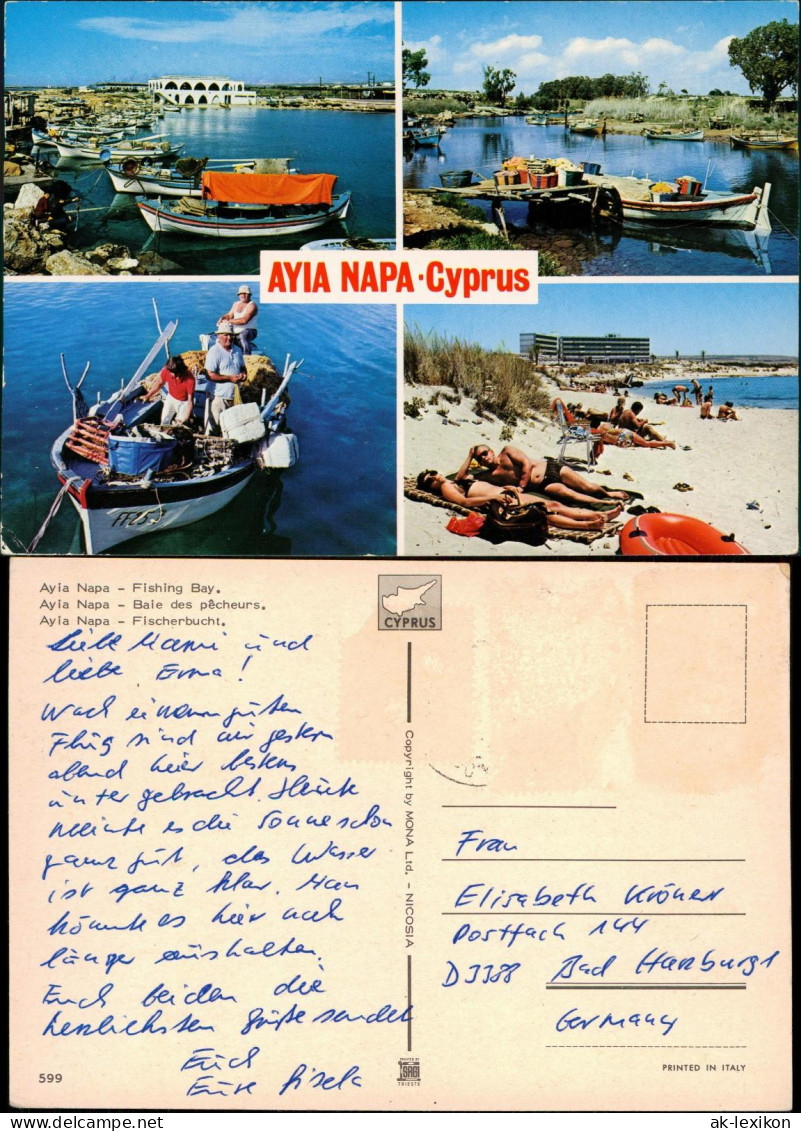 AYIA NAPA · Cyprus
Ayia Napa - Fishing Bay.
Ayia Napa - Baie des pêcheurs.
Ayia Napa - Fischerbucht.
CYPRUS
Liebe Mami und
liebe Erna!
Nach einem guten
Flug sind wir gestern
abend hier bestens
untergebracht. Heute
meinte es die Sonne schon
ganz gut, das Wasser
ist ganz klar. Man
könnte es hier noch
länger aushalten.
Euch beiden die
herzlichsten Grüße sendet
Euch
Eure Gisela
599
Copyright by MONA Ltd. - NICOSIA
PRINTED BY
SAGI
TRIESTE
Frau
Elisabeth
Postfach 144
D3388 Bad Harzburg 1
Germany
PRINTED IN ITALY
ak-lexikon